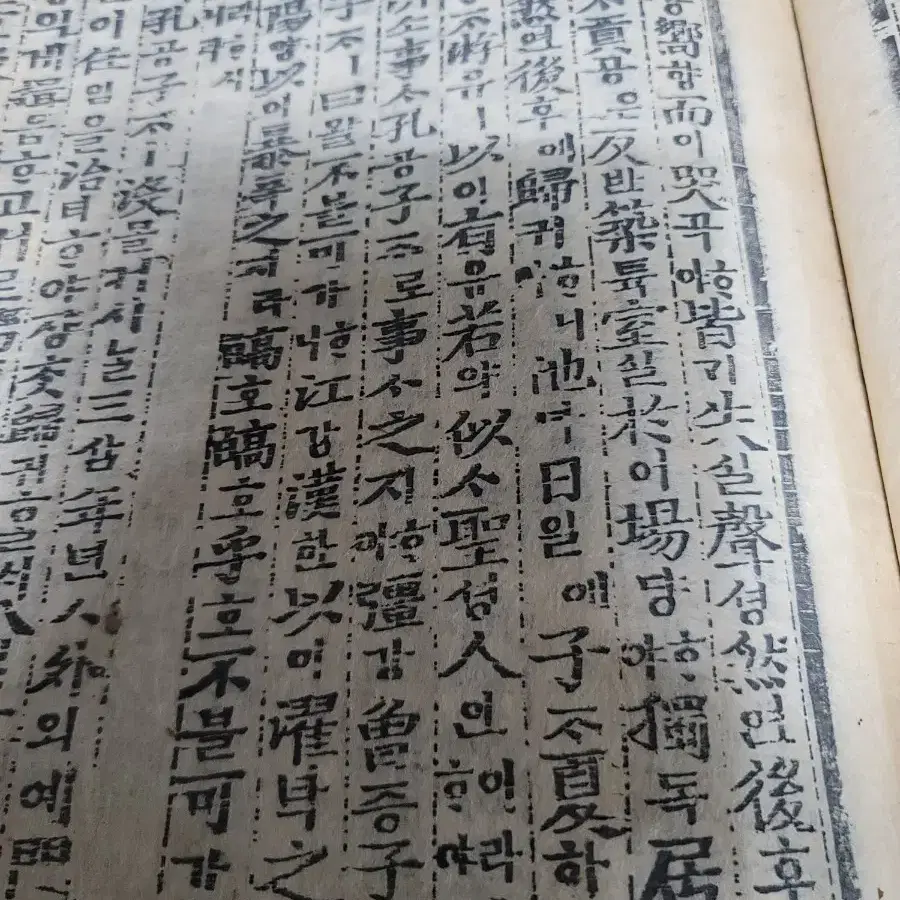 嚮향而이哭곡ᄒᆞ야皆기失실聲셩然연後후
貢공은反반築튝室실於어場댱ᄒᆞ야獨독居
然연後후에歸귀ᄒᆞ니他타日일에子ᄌᆞ夏하
ᄌᆞ游유ㅣ以이有유若약似ᄉᆞ聖셩人인이라ᄒᆞ야
所소事ᄉᆞ孔공子ᄌᆞ로事ᄉᆞ之지ᄒᆞ야彊강曾증子
子ᄌᆞㅣ曰왈不블可가ᄒᆞ니江강漢한以이濯탁之
陽양以이暴폭之지라皜호皜호乎호不블可가
귀ᄒᆞ시
孔공子ᄌᆞㅣ沒몰커시ᄂᆞᆯ三삼年년ㅅ外외예門
이任임을治티ᄒᆞ야쟝ᄎᆞᆺ歸귀ᄒᆞᆯᄉᆡ
의게揖읍ᄒᆞ고서르